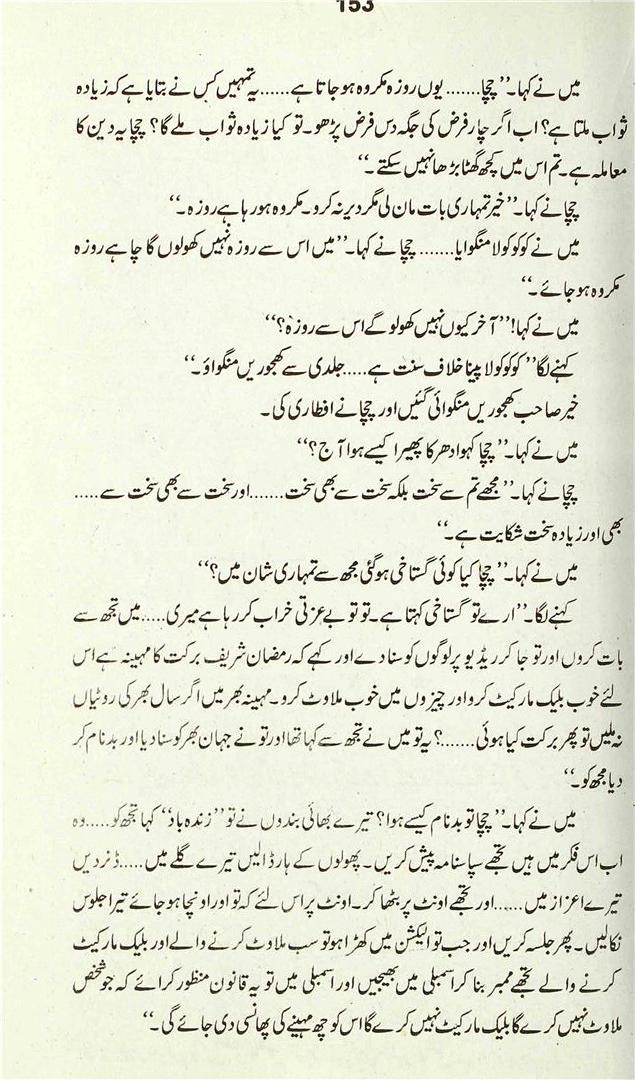 153
میں نے کہا۔’’چچا....... یوں روزہ مکروہ ہو جاتا ہے......یہ تمہیں کس نے بتایا ہے کہ زیادہ
ثواب ملتا ہے؟ اب اگر چار فرض کی جگہ دس فرض پڑھو۔ تو کیا زیادہ ثواب ملے گا؟ چچا یہ دین کا
معاملہ ہے۔ تم اس میں کچھ گھٹا بڑھا نہیں سکتے۔‘‘
چچا نے کہا۔’’خیر تمہاری بات مان لی مگر دیر نہ کرو۔ مکروہ ہو رہا ہے روزہ۔‘‘
میں نے کوکو کولا منگوایا....... چچا نے کہا۔’’میں اس سے روزہ نہیں کھولوں گا چاہے روزہ
مکروہ ہو جائے۔‘‘
میں نے کہا!’’آخر کیوں نہیں کھولو گے اس سے روزہ؟‘‘
کہنے لگا’’کوکو کولا پینا خلاف سنت ہے.....جلدی سے کھجوریں منگواؤ۔‘‘
خیر صاحب کھجوریں منگوائی گئیں اور چچا نے افطاری کی۔
میں نے کہا۔’’چچا کہو ادھر کا پھیرا کیسے ہوا آج؟‘‘
چچا نے کہا۔’’مجھے تم سے سخت بلکہ سخت سے بھی سخت.......اور سخت سے بھی سخت سے.....
بھی اور زیادہ سخت شکایت ہے۔‘‘
میں نے کہا۔’’چچا کیا کوئی گستاخی ہو گئی مجھ سے تمہاری شان میں؟‘‘
کہنے لگا۔’’ارے تو گستاخی کہتا ہے۔ تو تو بے عزتی خراب کر رہا ہے میری.....میں تجھ سے
بات کروں اور تو جا کر ریڈیو پر لوگوں کو سنا دے اور کہے کہ رمضان شریف برکت کا مہینہ ہے اس
لئے خوب بلیک مارکیٹ کرو اور چیزوں میں خوب ملاوٹ کرو۔ مہینہ بھر میں اگر سال بھر کی روٹیاں
نہ ملیں تو پھر برکت کیا ہوئی.......؟ یہ تو میں نے تجھ سے کہا تھا اور تو نے جہان بھر کو سنا دیا اور بدنام کر
دیا مجھ کو۔‘‘
میں نے کہا۔’’چچا تو بدنام کیسے ہوا؟ تیرے بھائی بندوں نے تو’’زندہ باد‘‘ کہا تجھ کو.....وہ
اب اس فکر میں ہیں تجھے سپاسنامہ پیش کریں۔ پھولوں کے ہار ڈالیں تیرے گلے میں.....ڈنر دیں
تیرے اعزاز میں......اور تجھے اونٹ پر بٹھا کر۔ اونٹ پر اس لئے کہ تو اور اونچا ہو جائے تیرا جلوس
نکالیں۔ پھر جلسہ کریں اور جب تو الیکشن میں کھڑا ہو تو سب ملاوٹ کرنے والے اور بلیک مارکیٹ
کرنے والے تجھے ممبر بنا کر اسمبلی میں بھیجیں اور اسمبلی میں تو یہ قانون منظور کرائے کہ جو شخص
ملاوٹ نہیں کرے گا بلیک مارکیٹ نہیں کرے گا اس کو چھ مہینے کی پھانسی دی جائے گی۔‘‘